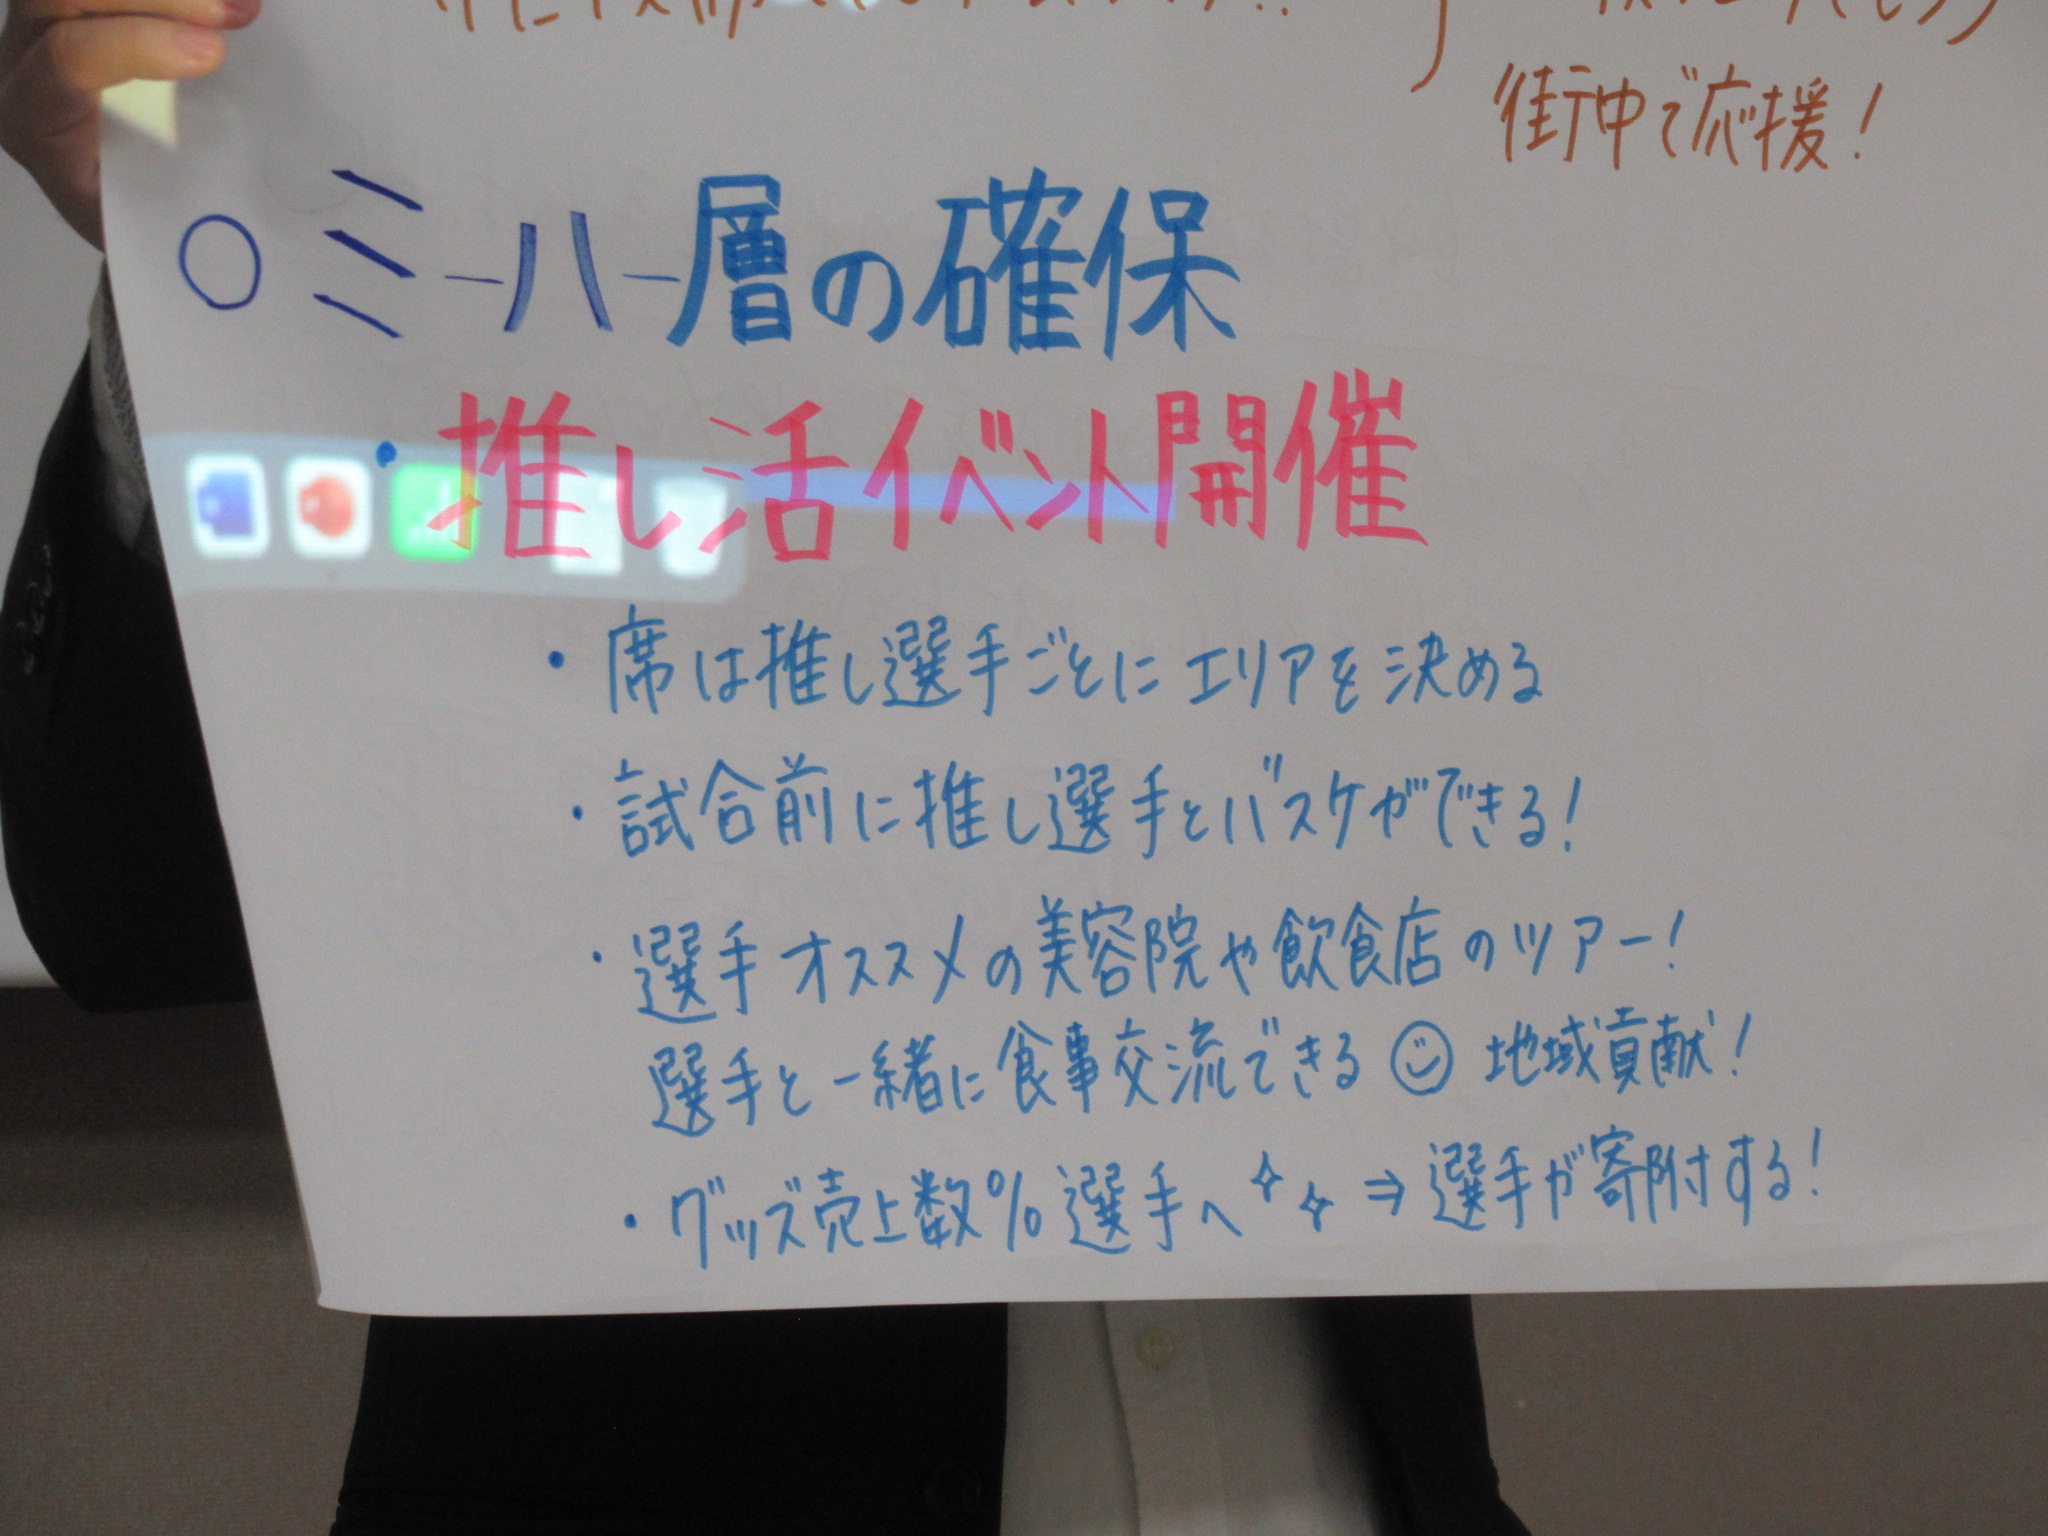 街中で応援!
○ミーハー層の確保
・推し活イベント開催
・席は推し選手ごとにエリアを決める
・試合前に推し選手とバスケができる!
・選手オススメの美容院や飲食店のツアー!
選手と一緒に食事交流できる☺ 地域貢献!
・グッズ売上数%選手へ✧✧⇒選手が寄附する!